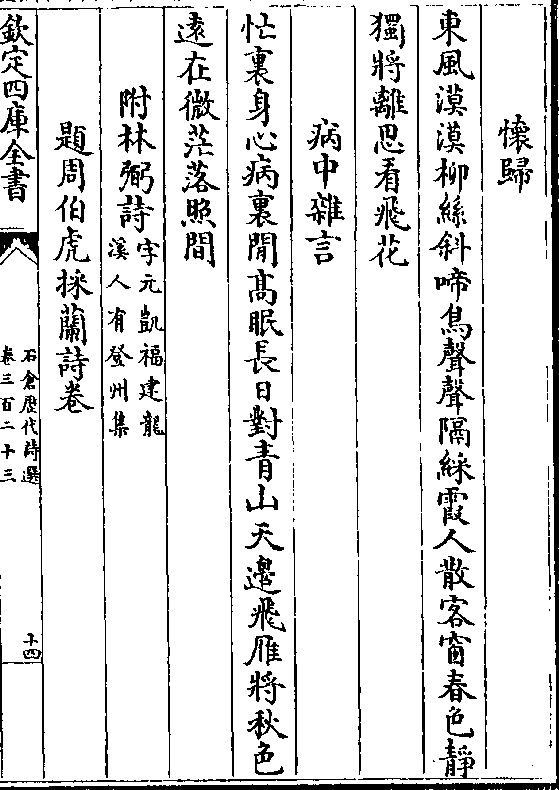 懷歸
東風漠漠柳絲斜啼鳥聲聲隔綵霞人散客窗春色靜
獨將離思看飛花
病中雜言
忙裏身心病裏閒高眠長日對青山天邊飛雁將秋色
遠在微茫落照間
附林弼詩字元凱福建龍
溪人有登州集
題周伯虎採蘭詩卷
欽定四庫全書
石倉歴代詩選
卷三百二十三
十四